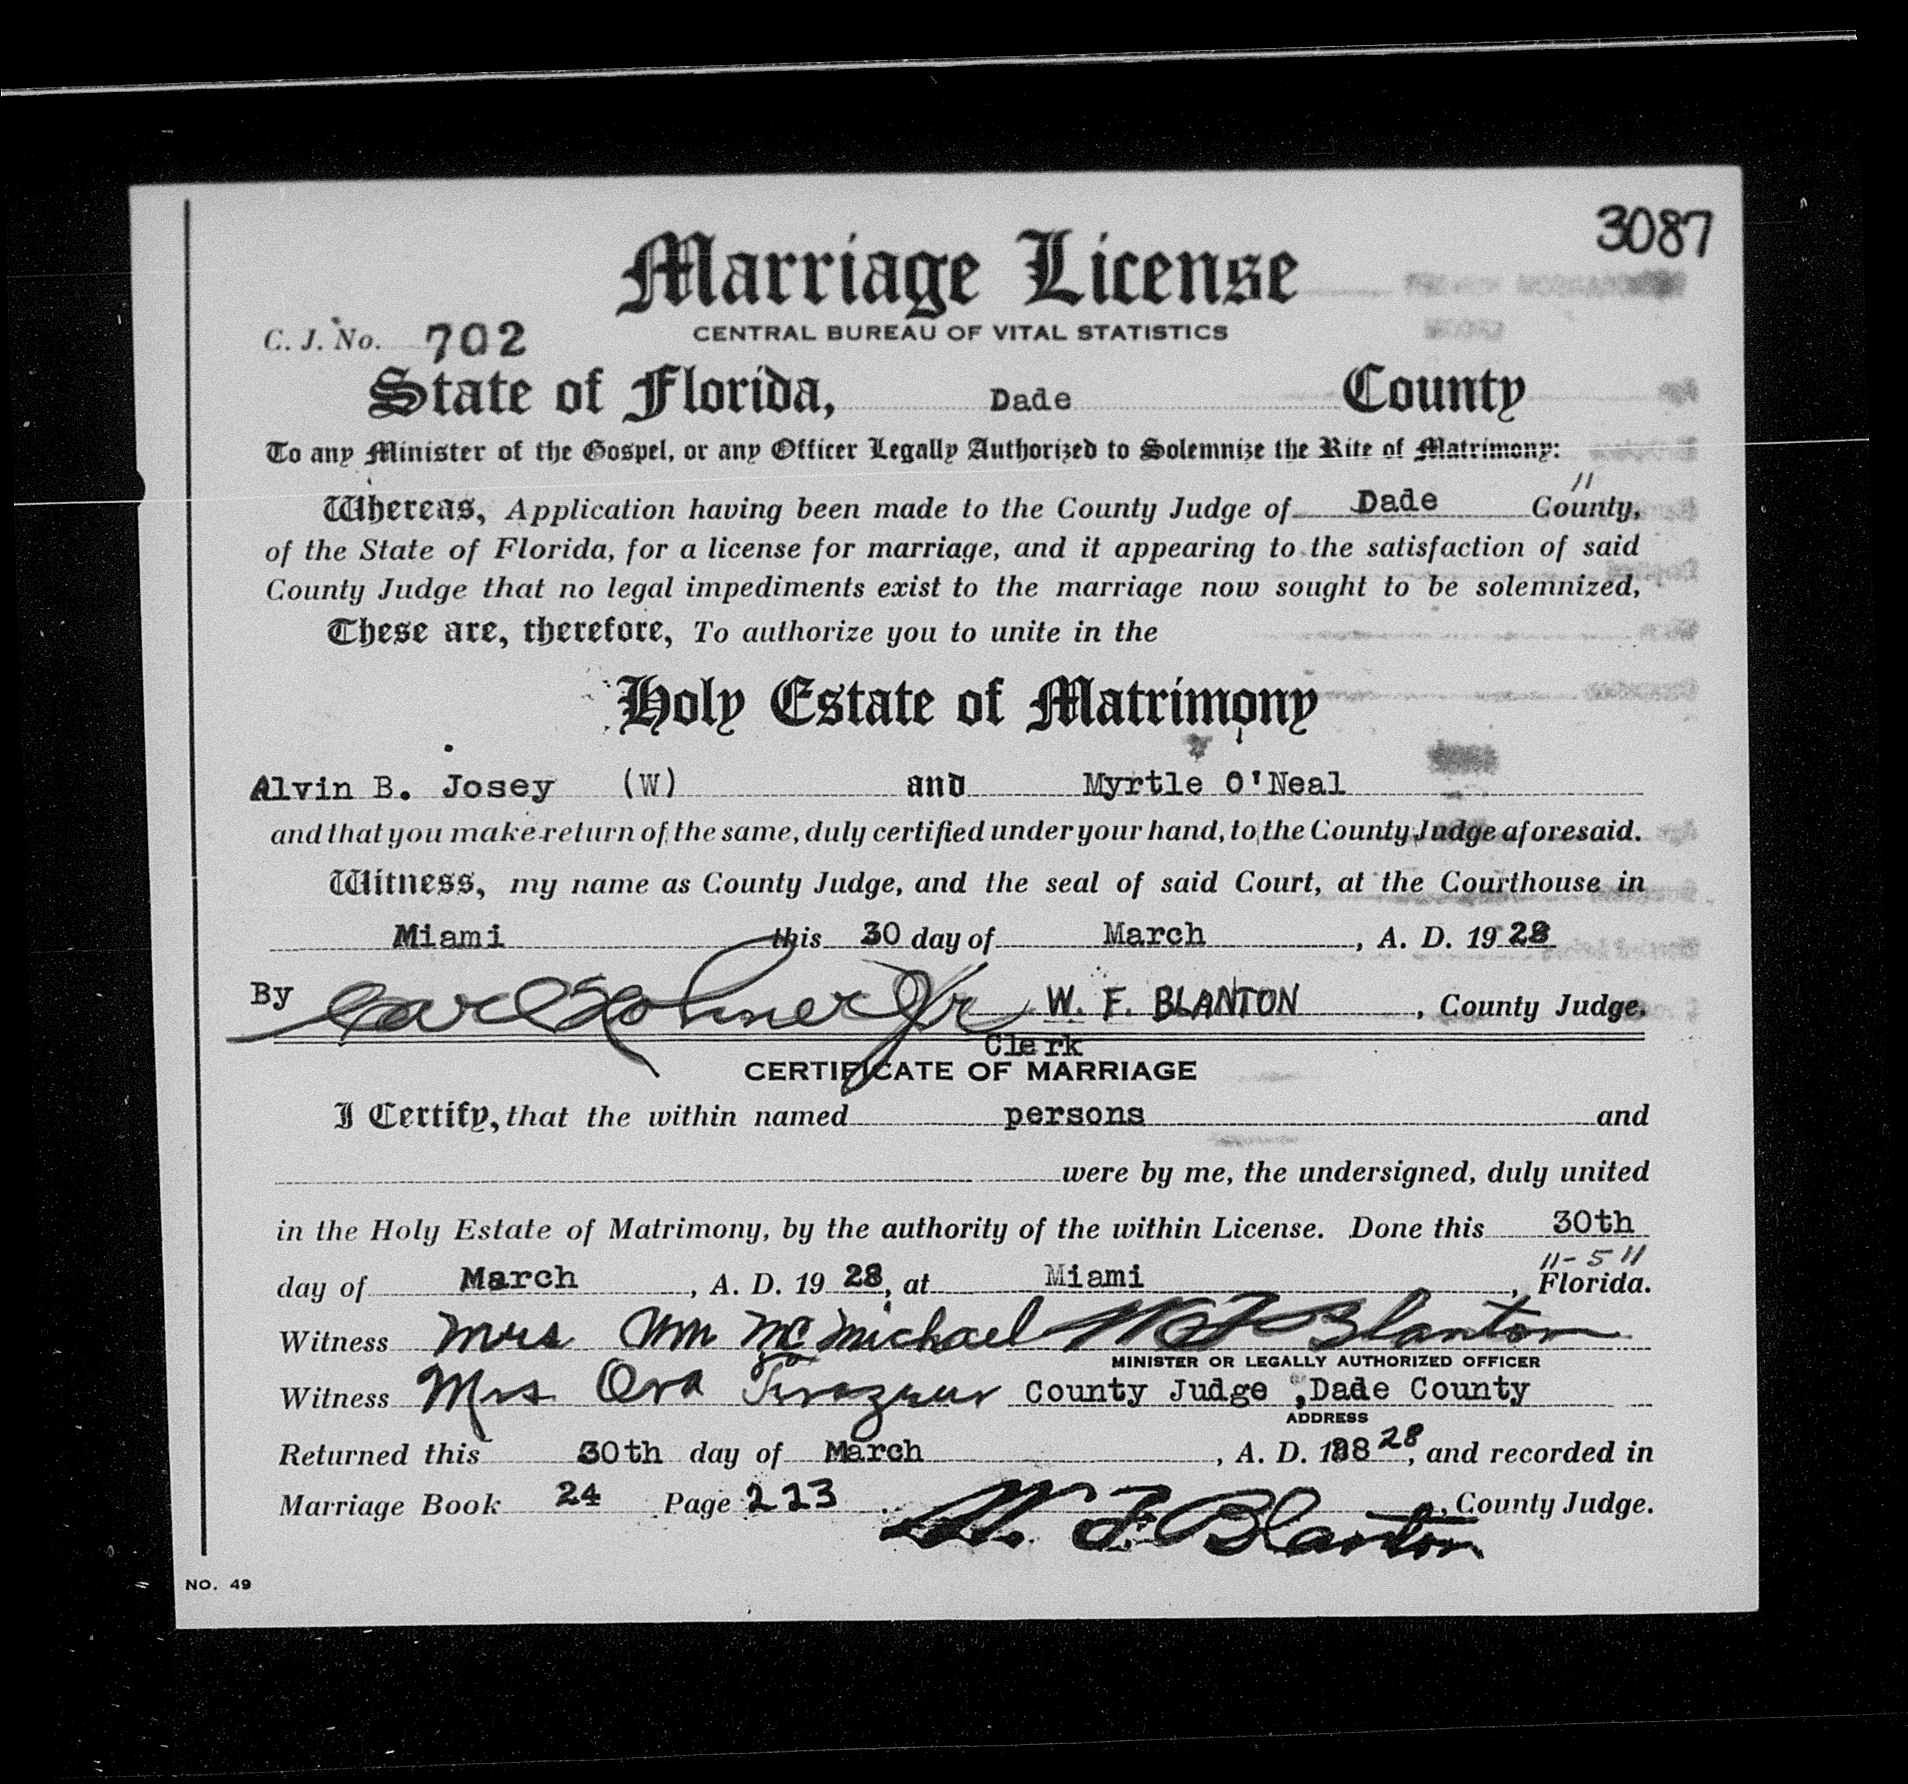 3087
Marriage License
C. J. No. 702 CENTRAL BUREAU OF VITAL STATISTICS
State of Florida, Dade County
To any Minister of the Gospel, or any Officer Legally Authorized to Solemnize the Rite of Matrimony:
"
Whereas, Application having been made to the County Judge of Dade County,
of the State of Florida, for a license for marriage, and it appearing to the satisfaction of said
County Judge that no legal impediments exist to the marriage now sought to be solemnized,
These are, therefore, To authorize you to unite in the
Holy Estate of Matrimony
Alvin B. Josey (W) and Myrtle O'Neal
and that you make return of the same, duly certified under your hand, to the County Judge aforesaid.
Witness, my name as County Judge, and the seal of said Court, at the Courthouse in
Miami this 30 day of March, A. D. 1928
By Carl Jr W. F. BLANTON, County Judge.
Clerk
CERTIFICATE OF MARRIAGE
I Certify, that the within named persons and
were by me, the undersigned, duly united
in the Holy Estate of Matrimony, by the authority of the within License. Done this 30th
11-5 11
day of March, A. D. 19 28, at Miami, Florida.
Witness Mrs Wm McMichael W F Blanton
MINISTER OR LEGALLY AUTHORIZED OFFICER
Witness Mrs Ora County Judge, Dade County
ADDRESS
Returned this 30th day of March, A. D. 19 28, and recorded in
Marriage Book 24 Page 223 W. F. Blanton, County Judge.
NO. 49